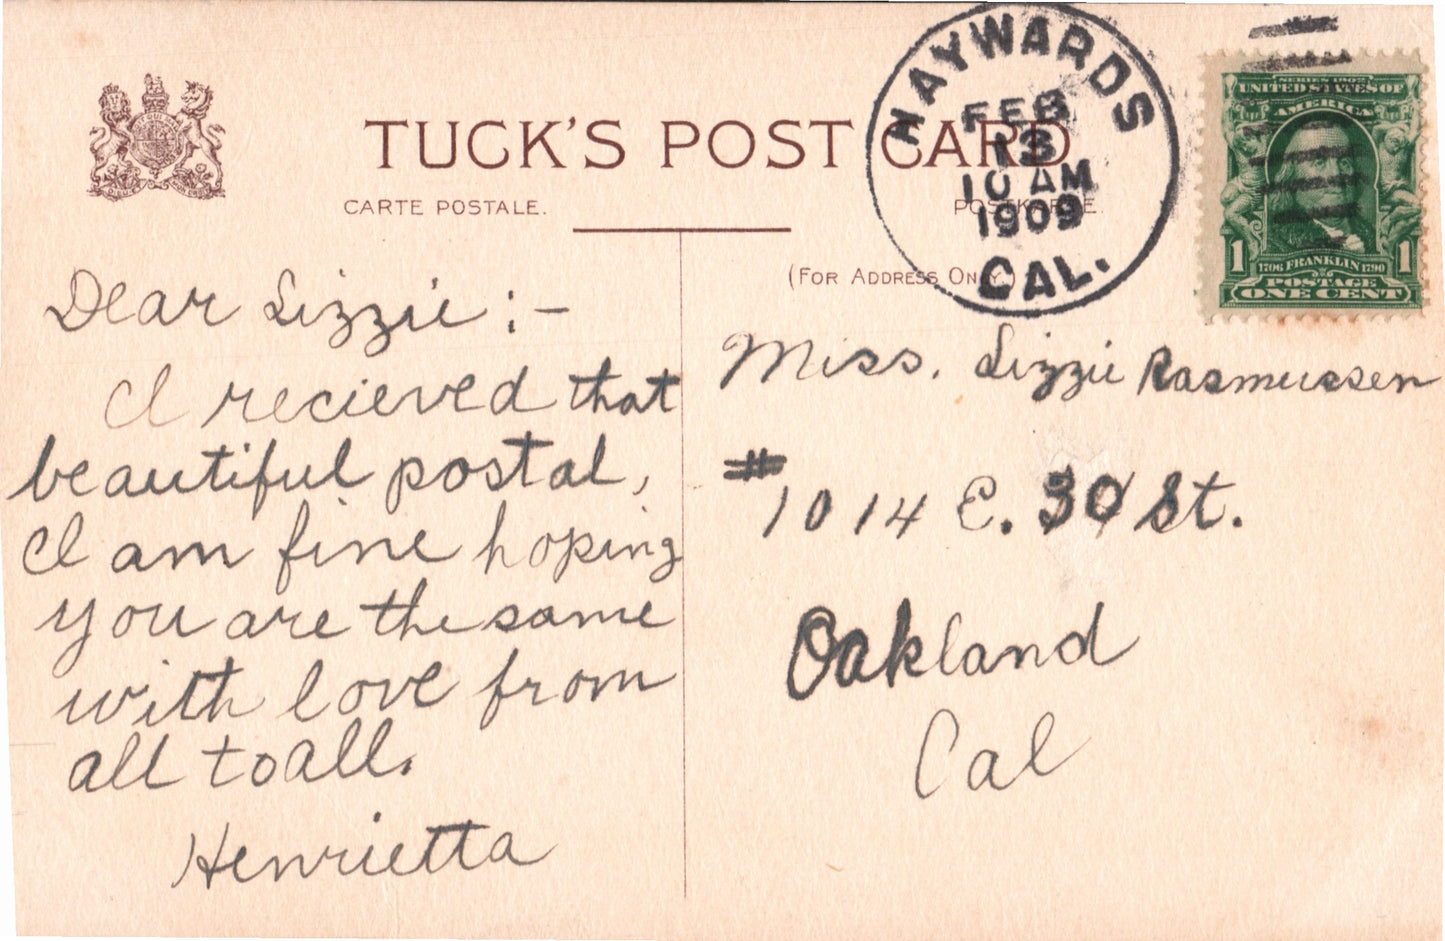 TUCK'S POST CARD
CARTE POSTALE.
POSTKARTE.
(FOR ADDRESS ONLY.)
HAYWARDS
FEB
13
10 AM
1909
CAL.
SERIES 1902
UNITED STATES OF
AMERICA
1 1706 FRANKLIN 1790 1
POSTAGE
ONE CENT
Dear Lizzie :-
I recieved that
beautiful postal,
I am fine hoping
you are the same
with love from
all to all.
Henrietta
Miss. Lizzie Rasmussen
# 1014 E. 30 St.
Oakland
Cal